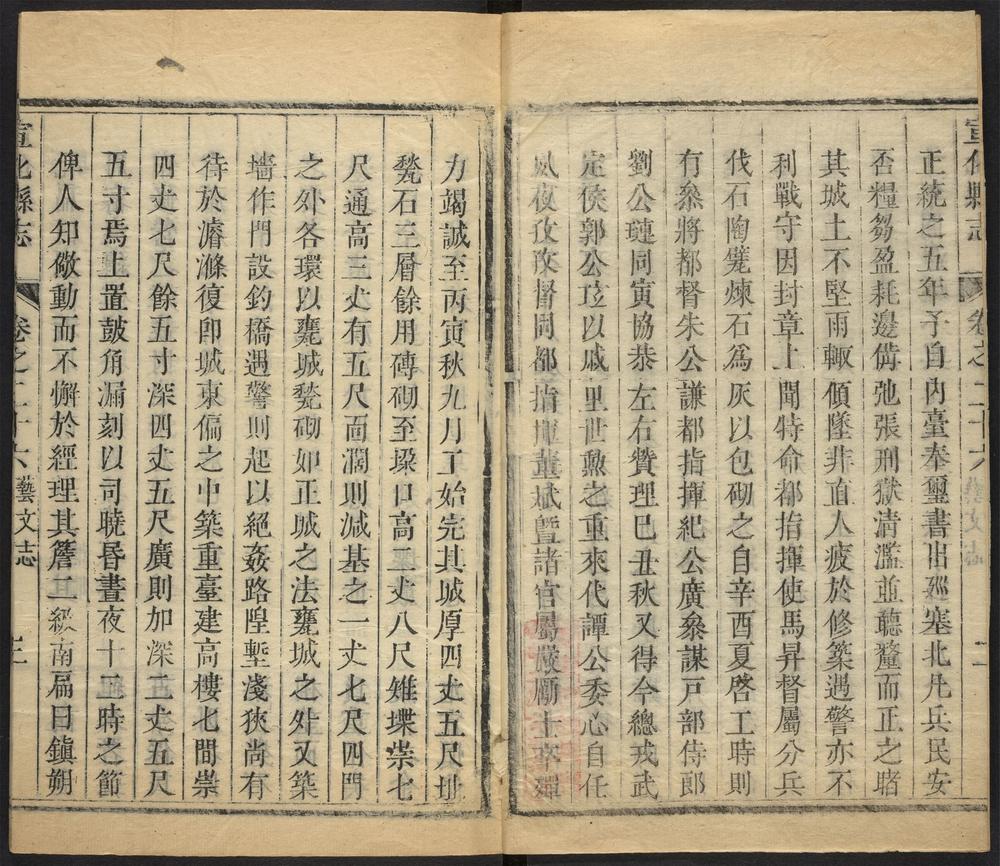 宣化縣志 卷之二十六 藝文志
正統之五年予自內臺奉璽書出廵塞北凡兵民安
否糧芻盈耗邊備弛張刑獄清濫並聽釐而正之睹
其城土不堅雨輙傾墜非直人疲於修築遇警亦不
利戰守因封章上聞特命都指揮使馬昇督屬分兵
伐石陶甓煉石為灰以包砌之自辛酉夏啓工時則
有叅將都督朱公謙都指揮紀公廣叅謀戶部侍郎
劉公璉同寅協恭左右贊理巳丑秋又得今總戎武
定侯郭公玹以戚里世勲之重來代譚公委心自任
夙夜孜孜督同都指揮董斌暨諸官屬嚴勵士卒殫
力竭誠至丙寅秋九月工始完其城厚四丈五尺址
甃石三層餘用磚砌至垜口高二丈八尺雉堞崇七
尺通高三丈有五尺面濶則减基之一丈七尺四門
之外各環以甕城甃砌如正城之法甕城之外又築
墻作門設釣橋遇警則起以絕姦路隍塹淺狹尚有
待於濬滌復卽城東偏之中築重臺建高樓七間崇
四丈七尺餘五寸深四丈五尺廣則加深二丈五尺
五寸焉上置鼓角漏刻以司曉昏晝夜十二時之節
俾人知儆動而不懈於經理其簷二級南扁曰鎮朔
宣化縣志 卷之二十六 藝文志